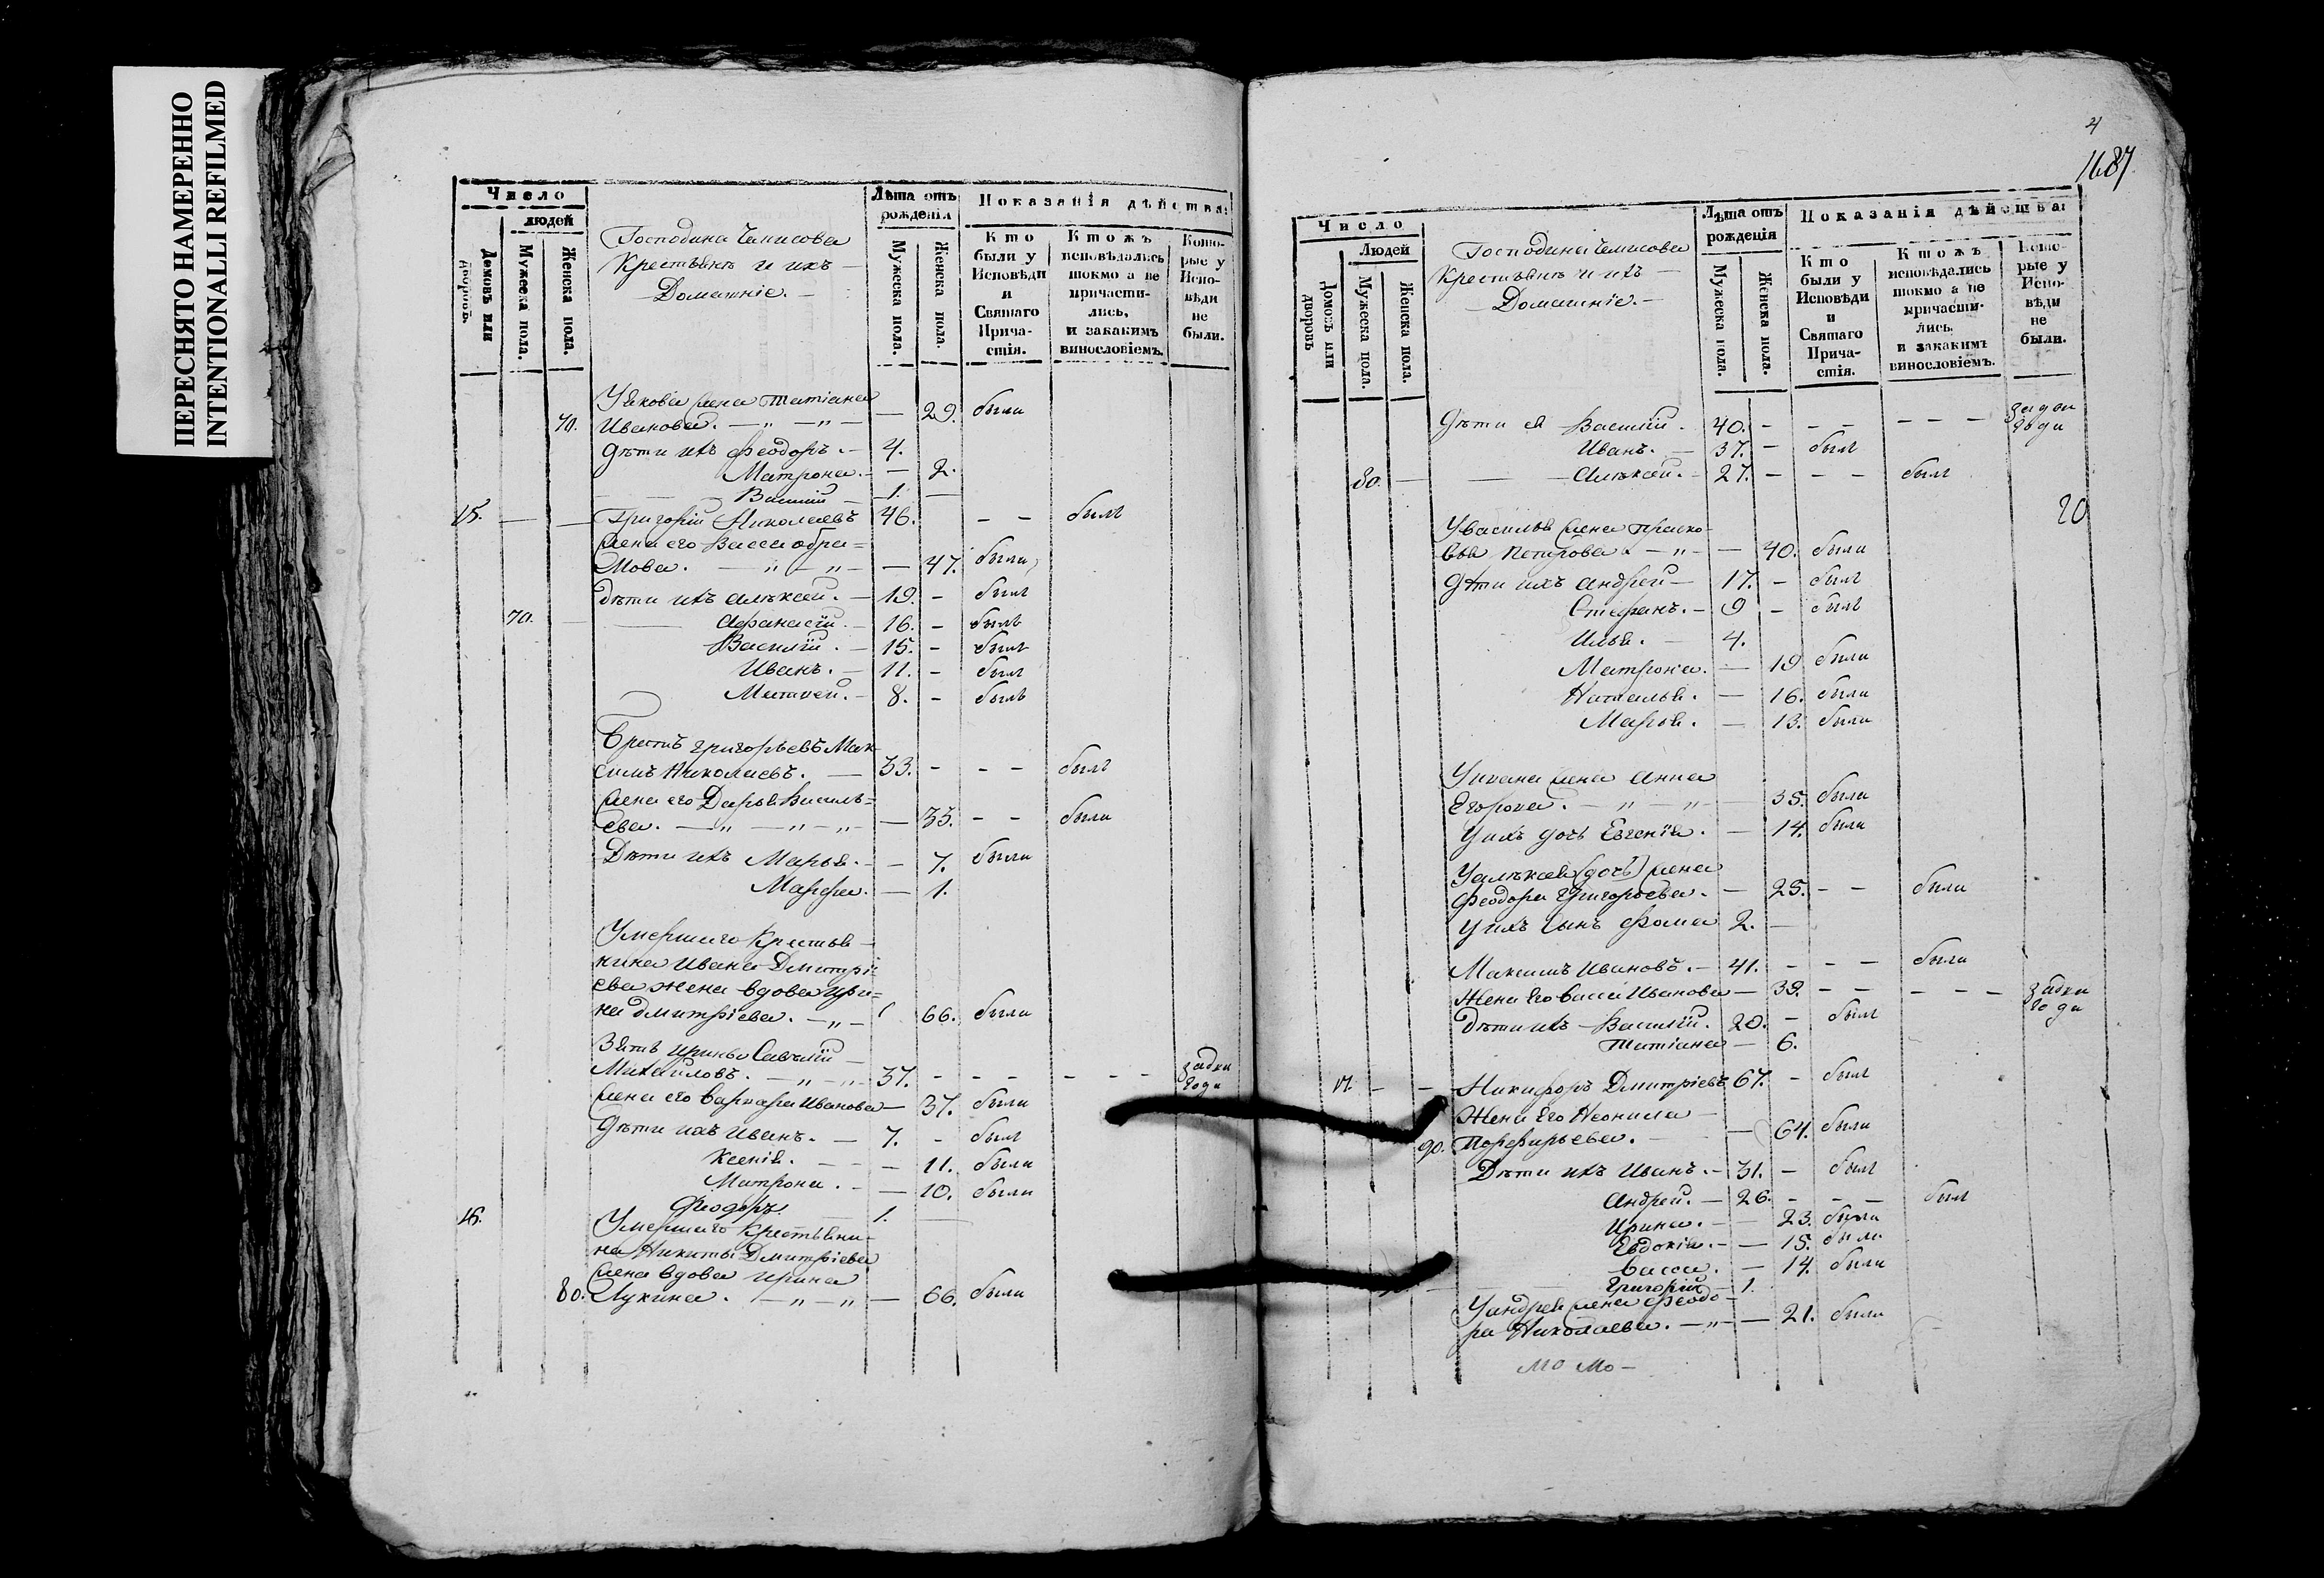 ПЕРЕСНЯТО НАМЕРЕННО
INTENTIONALLI REFILMED
Число
людей
Домовъ или дворовъ.
Мужеска пола.
Женска пола.
Господина
Крестьянъ и ихъ —
— Домашніе. —
Лѣта отъ рожденія
Мужеска пола.
Женска пола.
Показанія дѣйства:
Кто были у Исповѣди и Святаго Прича-стія.
Ктожъ исповѣдались токмо а не причасти-лись, и закакимъ винословіемъ.
Кото-рые у Испо-вѣди не были.
Уякова жена Татіана
70. Иванова. — „ — „ — — 29. была
Дѣти ихъ Феодоръ. — 4.
Матрона. — — 2.
Василій — 1. —
15. — — Григорій Николаевъ 46. — — былъ
Жена его Васса Абра=
мова. — „ — „ — — 47. была
Дѣти ихъ Алѣксей. — 19. - былъ
70. — Афанасій. — 16. - былъ
Василій. — 15. - былъ
Иванъ. — 11. - былъ
Матвей. — 8. - былъ
Братъ Григорьевъ Мак-
симъ Николаевъ. — 33. - - - былъ
Жена его Дарья Василь=
ева. — „ — „ — „ — — 33. - - была
Дѣти ихъ Марья. — — 7. была
Марфа. — 1.
Умершаго Крестья-
нина Ивана Дмитрі-
ева жена вдова Ири=
на Дмитріева. — „ — 66. была
Зять Ирины Савелій —
Михайловъ. — „ — „ — 37. - - - - - - задва
года
Жена его Варвара Иванова — 37. была
Дѣти ихъ Иванъ. — 7. - былъ
Ксенія. — — 11. была
Матрона. — — 10. была
Феодоръ. — 1. —
16. Умершаго Крестьяни-
на Никиты Дмитріева
жена вдова Ирина
80. Лукина. — „ — „ — 66. была
4
1687.
Число
Людей
Домовъ или дворовъ
Мужеска пола.
Женска пола.
Господина
Крестьянъ и ихъ —
— Домашніе. —
Лѣта отъ рожденія
Мужеска пола.
Женска пола.
Показанія дѣйства:
Кто были у Исповѣди и Святаго Прича-стія.
Ктожъ исповѣдались токмо а не причасти-лись, и закакимъ винословіемъ.
Кото-рые у Испо-вѣди не были.
Дѣти ея Василій. 40. - - - — — — задва
года
Иванъ. — 37. - былъ
80. — — Алѣксей. - 27. - - - былъ
20
Увасилья жена Праско-
вья Петрова. — „ — — 40. была
Дѣти ихъ Андрей — 17. - былъ
Стефанъ. — 9 - былъ
Илья. — 4.
Матрона. — 19 была
Наталья. — 16. была
Марья. — 13. была
Уивана жена Анна
Егорова. — „ — „ — 35. была
Уихъ дочь Евгенія. — 14. была
Уалѣксея (дочь) жена
Феодора Григорьева. — 25. - - была
Уихъ сынъ Фома 2. —
Максимъ Ивановъ. — 41. - - — былъ
Жена Его Васса Иванова — 39. - - - - - задва
года
Дѣти ихъ Василій. 20. - былъ
Татіана — 6.
17. — — Никифоръ Дмитріевъ 67. - былъ
Жена Его Неонила —
90. Порфирьева. — 64. была
Дѣти ихъ Иванъ. — 31. - былъ
Андрей. — 26. - - - былъ
Ирина. — — 23. была
Евдокія. — — 15. была
Васса. — 14. была
Григорій — 1.
Уандрея жена Феодо-
ра Николаева. — „ — — 21. была